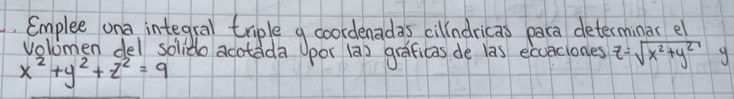 Emplee una integral triple y coordenadas cilíndricas para determinar el
volumen del sólido acotada por las gráficas de las ecuaciones z=√x²+y² y
x²+y²+z²=9